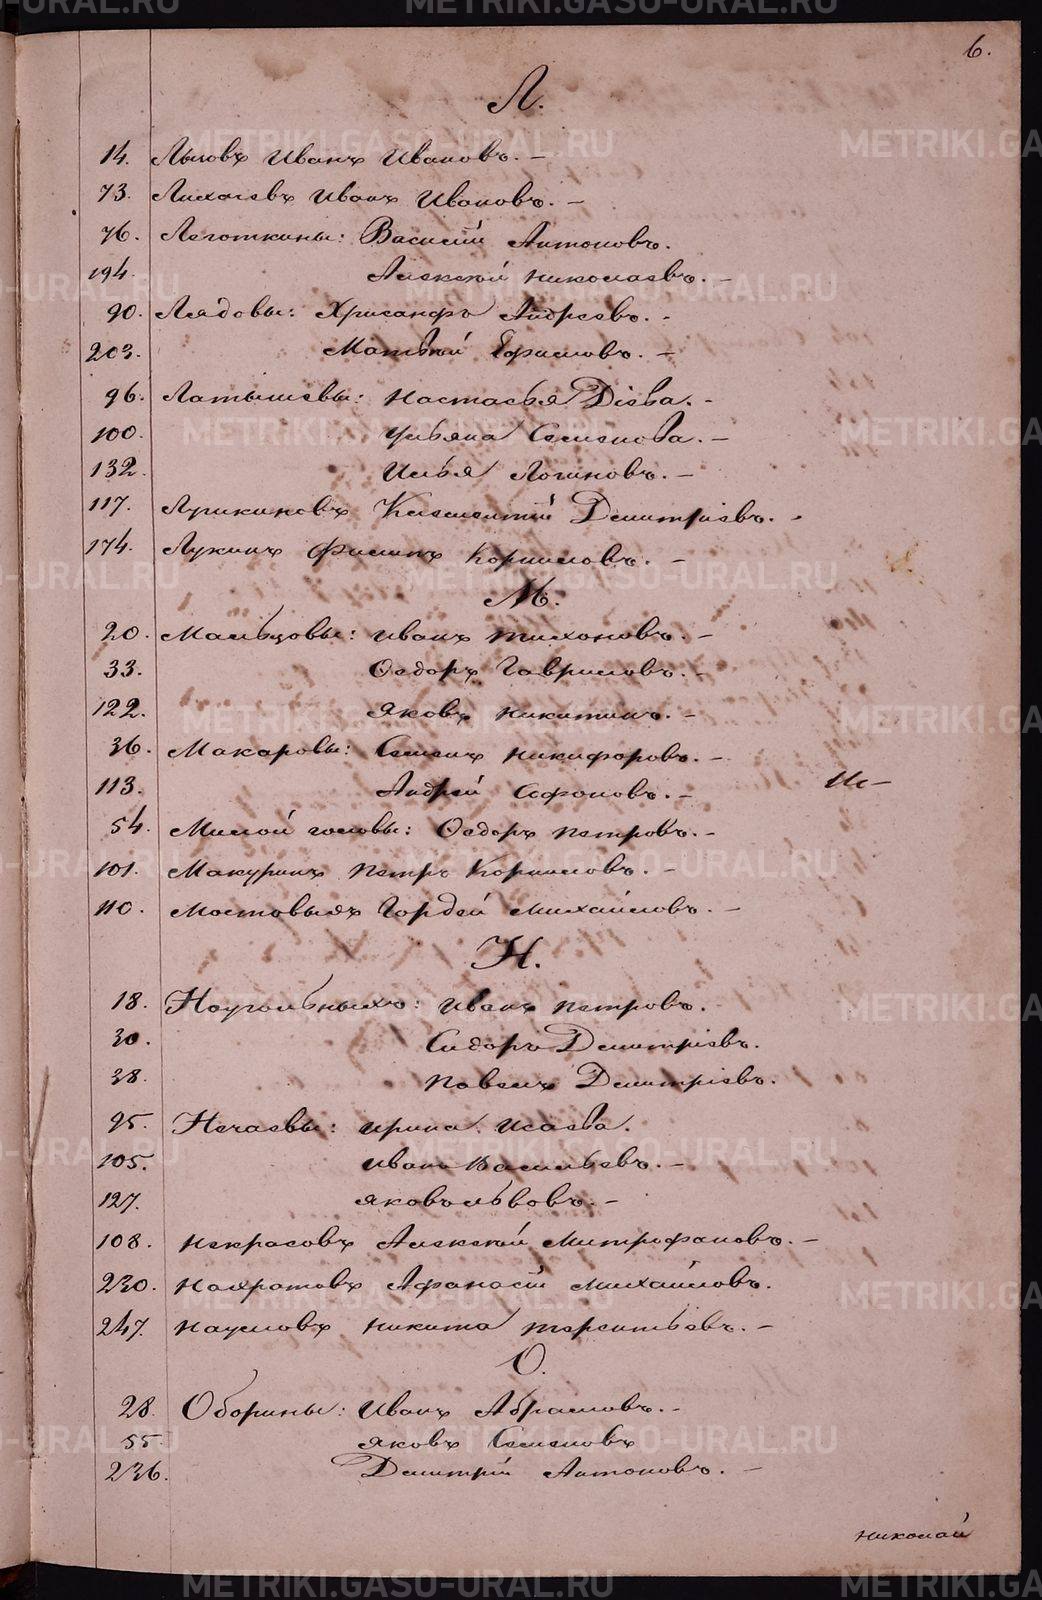 6.
Л.
14. Лыковъ Иванъ Ивановъ. –
73. Лихачевъ Иванъ Ивановъ. –
76. Леготкины: Василій Антоновъ.
194. Алексѣй Николаевъ. –
90. Лядовы: Хрисанфъ Андреевъ. –
203. Матвѣй Ефимовъ. –
96. Латышевы: Настасья Діева. –
100. Ульяна Семенова. –
132. Илья Логиновъ. –
117. Клементій Дмитріевъ. –
174. Лукинъ Филипъ Корниловъ. –
М.
20. Мальцовы: Иванъ Тихоновъ. –
33. Ѳедоръ Гавриловъ. –
122. Яковъ Никитинъ. –
36. Макаровы: Семенъ Никифоровъ. –
113. Андрей Софоновъ. –
54. Милой головы: Ѳедоръ Петровъ. –
101. Макуринъ Петръ Корниловъ. –
110. Мостовыхъ Гордѣй Михайловъ. –
Н.
18. Наугольныхъ: Иванъ Петровъ.
30. Сидоръ Дмитріевъ.
38. Павелъ Дмитріевъ.
95. Нечаевы: Ирина Исаева.
105. Иванъ Васильевъ. –
127. Яковъ Львовъ. –
108. Некрасовъ Алексѣй Митрофановъ. –
230. Афанасій Михайловъ.
247. Наумовъ Никита Терентьевъ. –
О.
28. Оборины: Иванъ Абрамовъ. –
55. Яковъ Семеновъ
236. Дмитрій Антоновъ. –
Николай
METRIKI.GASO-URAL.RU